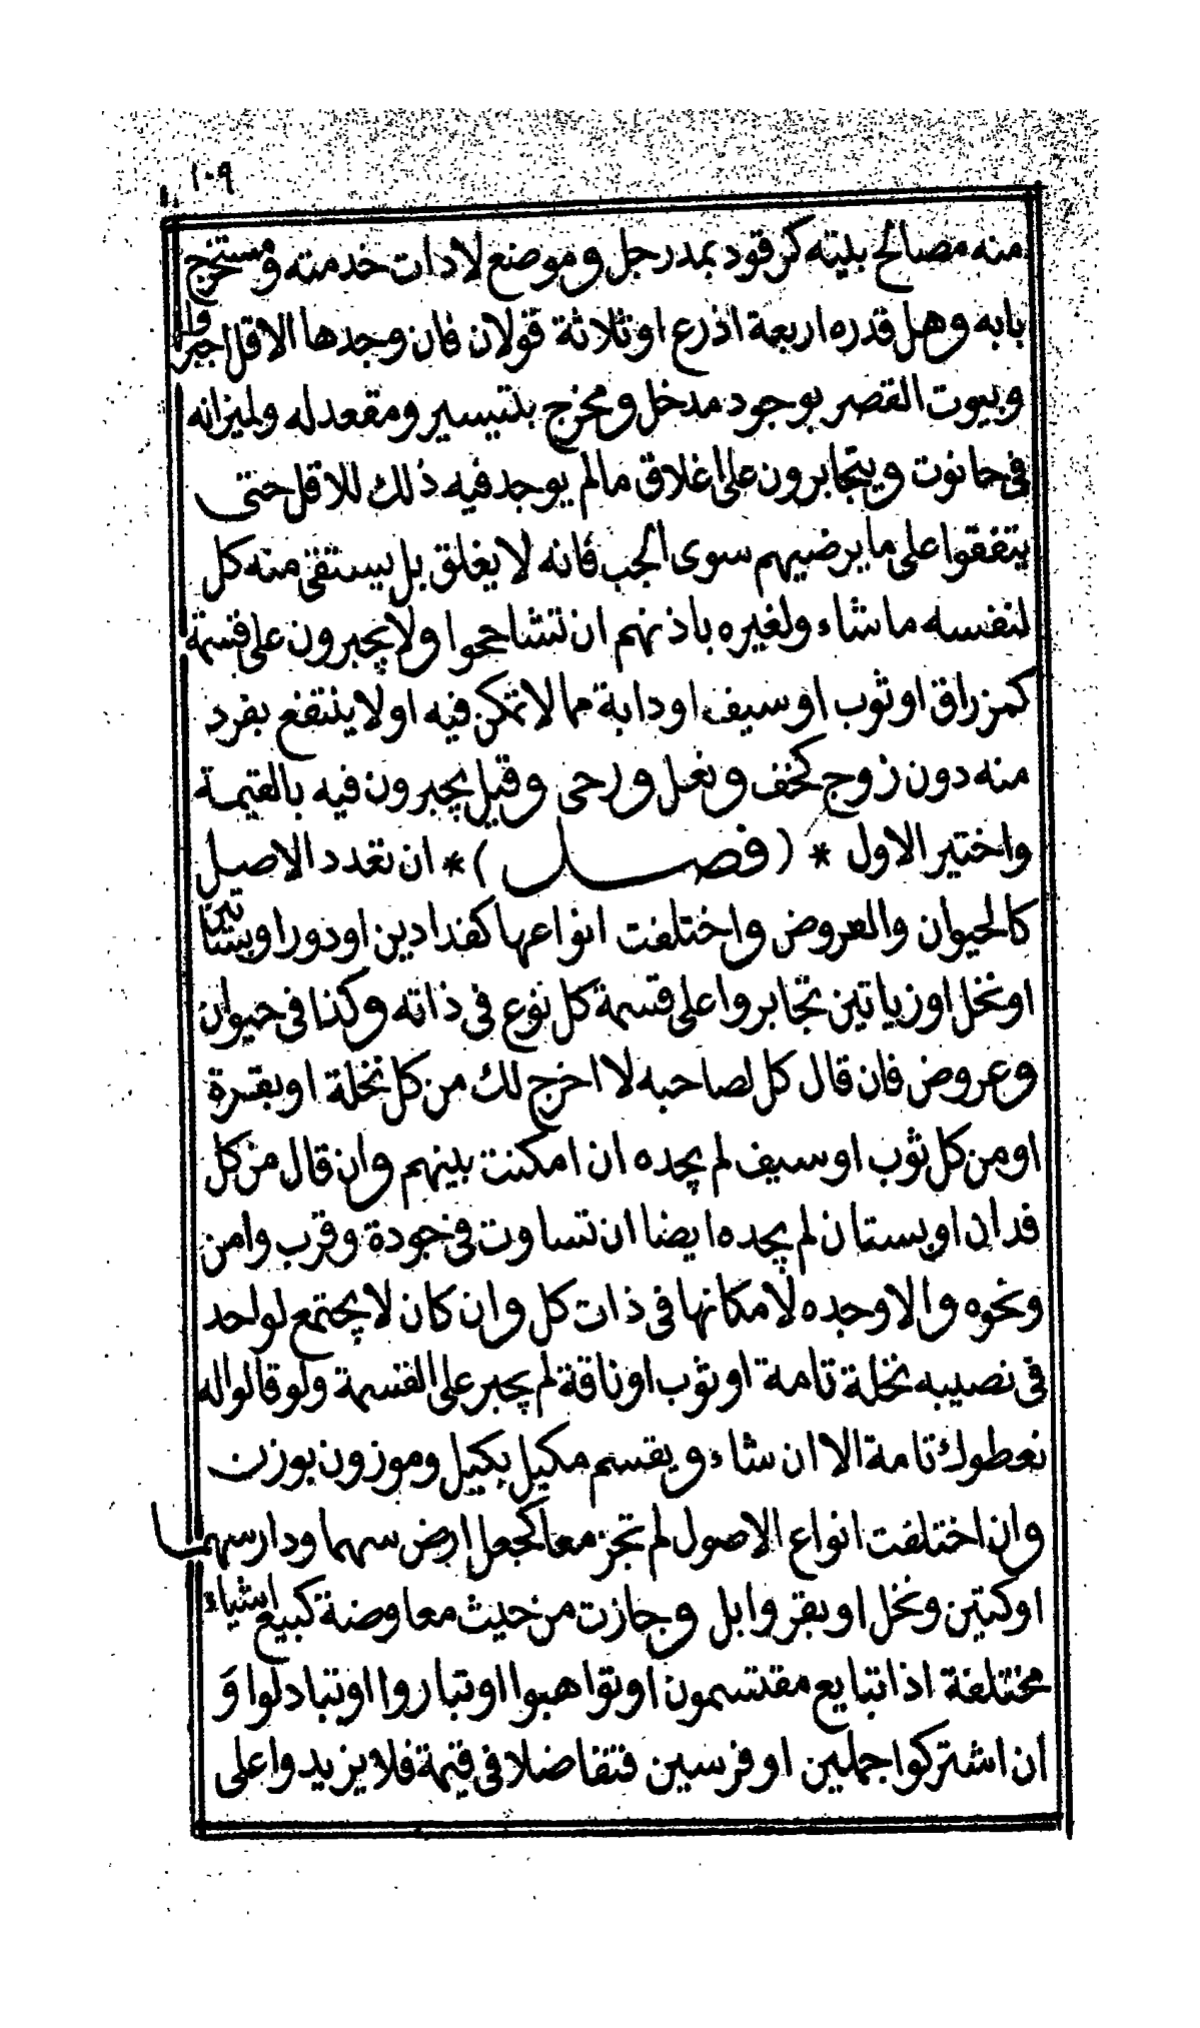 ١٠٩
منه مصالح بيته كرقود بمد رجل وموضع لادات خدمته ومستخرج
بابه وهل قدره اربعة اذرع او ثلاثة قولان فان وجدها الاقل اجبر والا
وبيوت القصر بوجود مدخل ومخرج بتيسير ومقعد له ولميزانه
فى حانوت ويتجابرون على اغلاق مالم يوجد فيه ذلك للاقل حتى
يتفقوا على ما يرضيهم سوى الجب فانه لا يغلق بل يستقى منه كل
لنفسه ما شاء ولغيره باذنهم ان تشاححوا ولا يجبرون على قسمة
كمزراق او ثوب او سيف او دابة مما لا تمكن فيه او لا ينتفع بفرد
منه دون زوج كخف ونعل ورحى وقيل يجبرون فيه بالقيمة
واختير الاول * (فصل) * ان تعدد الاصل
كالحيوان والعروض واختلفت انواعها كفدادين او دور او بساتين
او نخل او زياتين تجابروا على قسمة كل نوع فى ذاته وكذا فى حيوان
وعروض فان قال كل لصاحبه لا اخرج لك من كل نخلة او بقرة
او من كل ثوب او سيف لم يجده ان امكنت بينهم وان قال من كل
فدان او بستان لم يجده ايضا ان تساوت فى جودة وقرب وامن
ونحوه والا وجده لامكانها فى ذات كل وان كان لا يجتمع لواحد
فى نصيبه نخلة تامة او ثوب او ناقة لم يجبر على القسمة ولو قالوا له
نعطوك تامة الا ان شاء ويقسم مكيل بكيل وموزون بوزن
وان اختلفت انواع الاصول لم تجز معا كجعل ارض سهما ودار سهما
او كتين ونخل او بقر وابل وجازت من حيث معاوضة كبيع اشياء
مختلفة اذا تبايع مقتسمون او تواهبوا او تباروا او تبادلوا و
ان اشتركوا جملين او فرسين فتفاضلا فى قيمة فلا يزيدوا على